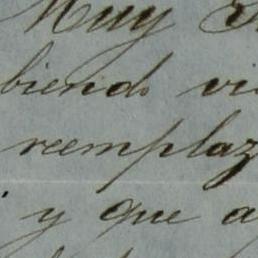 Muy
biendo vi
reemplaz
y que a